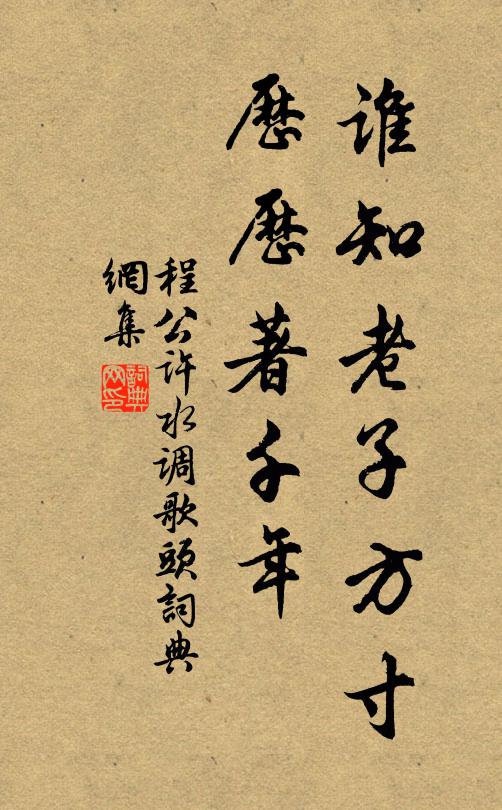 谁知老子方寸
歷歷著千年
程公许水调歌頭詞典
網集
詞典網印